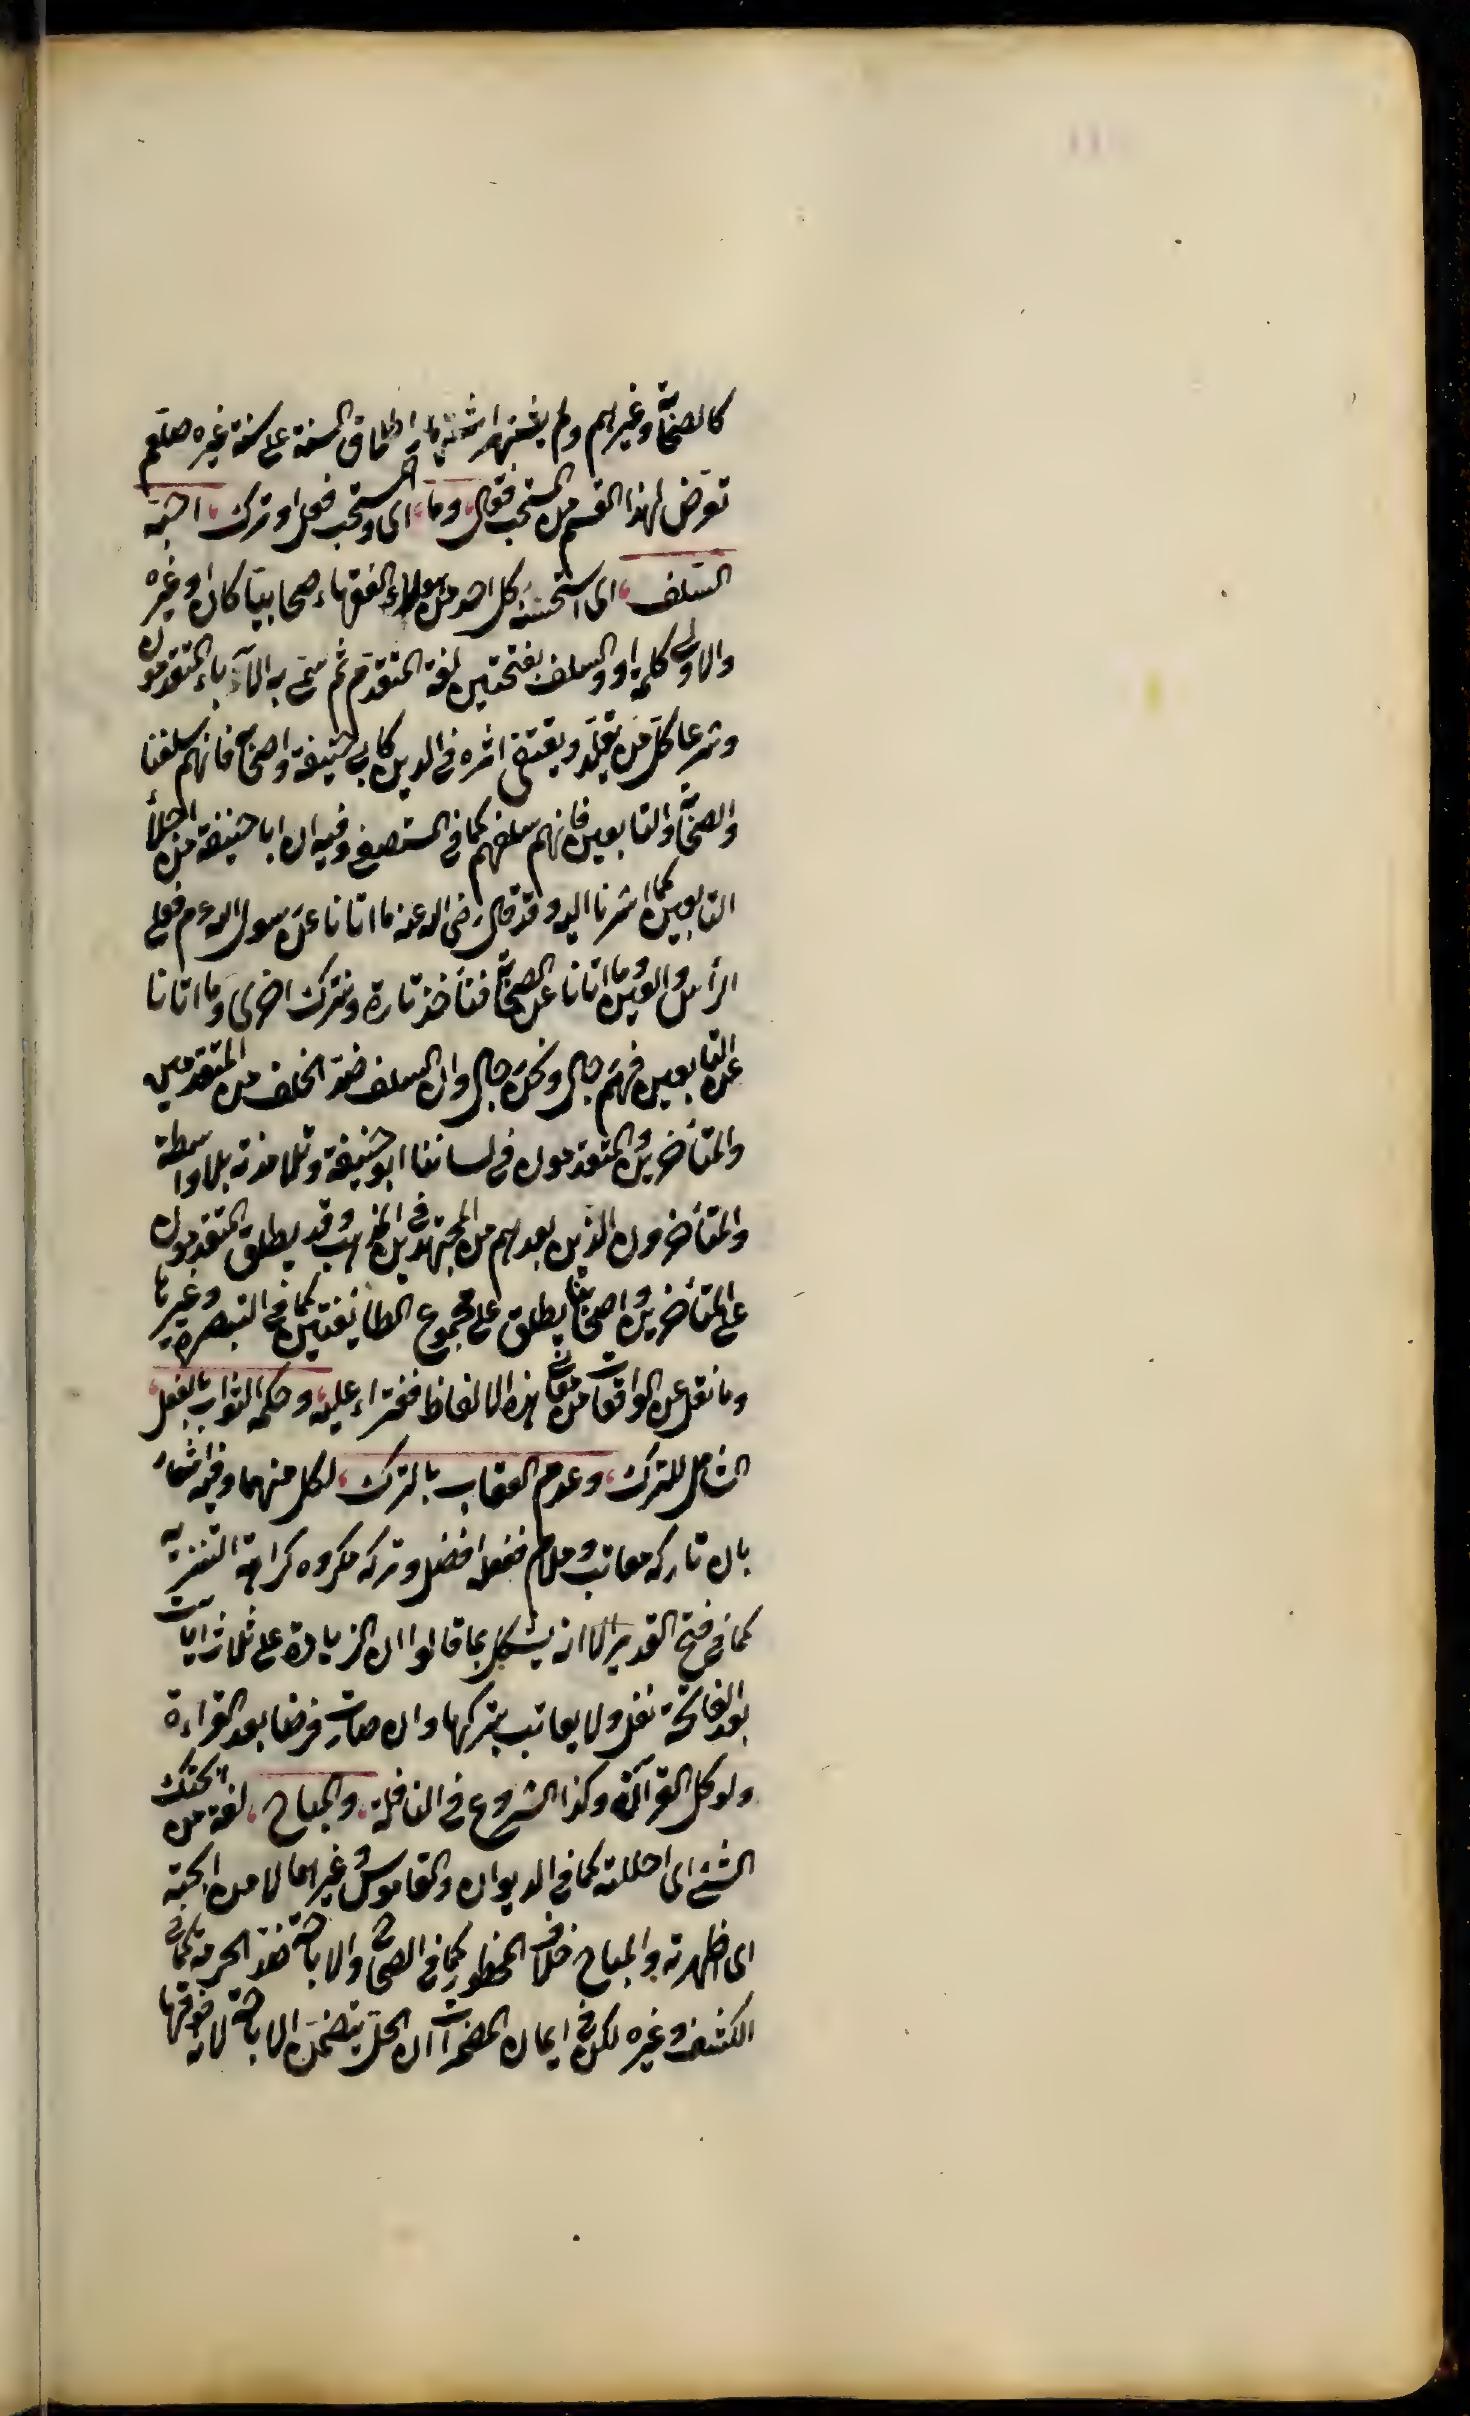 كالصحابة وغيرهم ولم يشتهر اطلاق السنة على سنة غيره صلعم
تعرض لهذا القسم من المستحب فقال وما اى والمستحب فعل او ترك احبه
السلف اى استحسنه كل احد من هؤلاء الفقهاء صحابيا كان او غيره
والاولى كلمة او والسلف بفتحتين لغة المتقدم ثم سمى به الآباء المتقدمون
وشرعا كل من يقلد ويقتفى اثره فى الدين كابى حنيفة واصحابه فانهم سلفنا
والصحابة والتابعين فانهم سلفهم كما فى المستصفى وفيه ان ابا حنيفة من اجلاء
التابعين كما اشرنا اليه وقد قال رضى الله عنه ما اتانا عن رسول الله عم فعلى
الرأس والعين وما اتانا عن الصحابة فنأخذ تارة ونترك اخرى وما اتانا
عن التابعين فهم رجال ونحن رجال وان السلف ضد الخلف من المتقدمين
والمتأخرين والمتقدمون فى لساننا ابو حنيفة وتلامذته بلا واسطة
والمتأخرون الذين بعدهم من المجتهدين فى المذهب وقد يطلق المتقدمون
على المتأخرين واصحابنا يطلق على مجموع الطائفتين كما فى التبصرة وغيرها
وما نقل عن الواقعات من معانى هذه الالفاظ فافتراء عليه وحكمه الثواب بالفعل
الشامل للترك وعدم العقاب بالترك لكل منهما وفيه اشعار
بان تاركه معاتب وملام ففعله افضل وتركه مكروه كراهة التنزيه
كما فى فتح القدير الا انه يشكل بما قالوا ان الزيادة على ثلاث ايات
بعد الفاتحة نفل ولا يعاتب بتركها وان صارت فرضا بعد القراءة
ولو كل القرآن وكذا الشروع فى النافلة والمباح لغة من ابحتك
الشئ اى احللته كما فى الديوان والقاموس وغيرهما لا من ابحته
اى اظهرته والمباح خلاف المحظور كما فى الصحاح والاباحة ضد الحرمة كما فى
الكشف وغيره لكن فى ايمان المضمرات ان الحل يتضمن الاباحة لانه فوقها